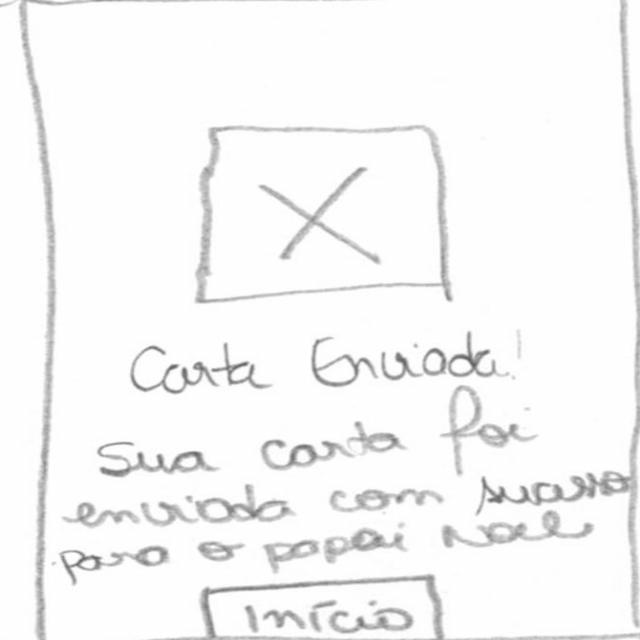 Carta Enviada!
Sua carta foi
enviada com sucesso
para o papai Noel
Início